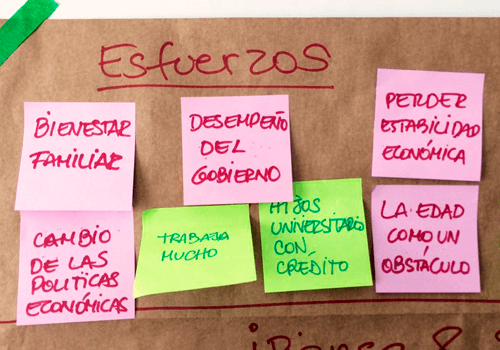 Esfuerzos
BIENESTAR
FAMILIAR
DESEMPEÑO
DEL
GOBIERNO
PERDER
ESTABILIDAD
ECONÓMICA
CAMBIO
DE LAS
POLITICAS
ECONÓMICAS
TRABAJA
MUCHO
HIJOS
UNIVERSITARIO
CON
CRÉDITO
LA EDAD
COMO UN
OBSTÁCULO